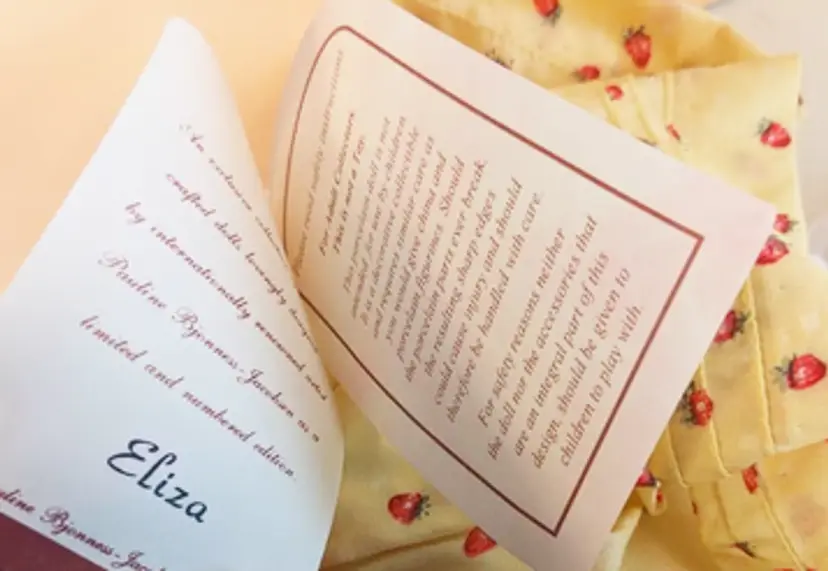 An exclusive
crafted dolls lovingly
by internationally renowned artist
Pauline Bjonness-Jacobsen in a
limited and numbered edition.
Eliza
Pauline Bjonness-Jacobsen
Please read safety instructions
For Adult Collectors.
This is not a Toy.
This porcelain doll is not
intended for use by children.
It is a decorative collectible
and requires similar care as
you would give china and
porcelain figurines. Should
the porcelain parts ever break,
the resulting sharp edges
could cause injury and should
therefore be handled with care.
For safety reasons neither
the doll nor the accessories that
are an integral part of this
design, should be given to
children to play with.